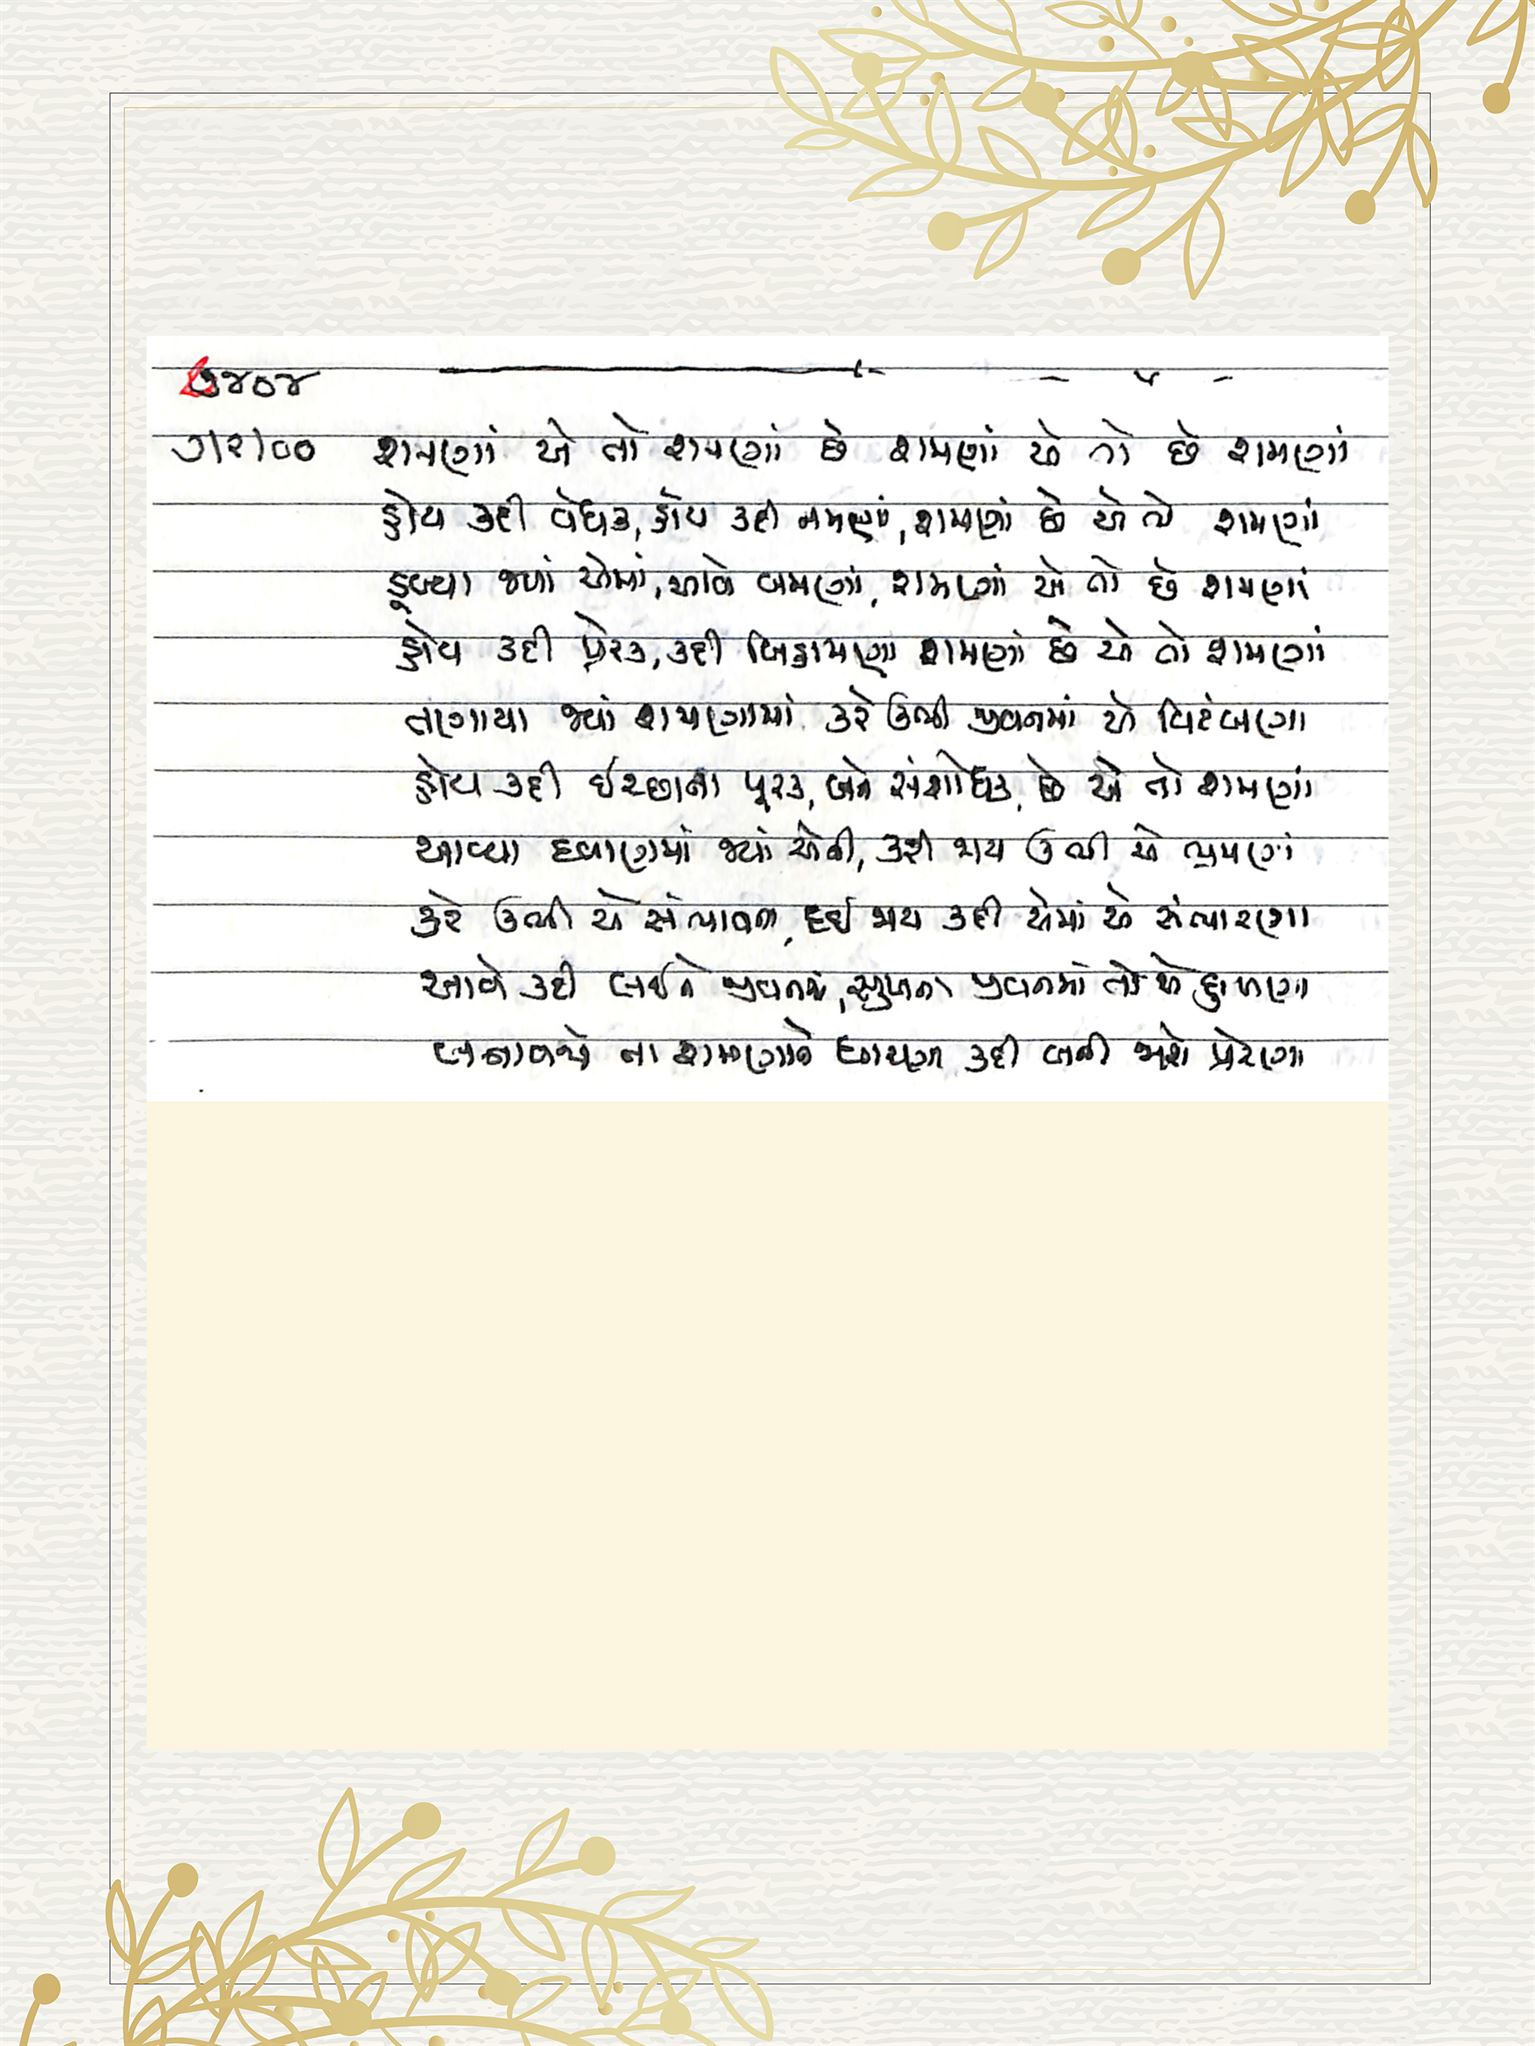 ૭૪૦૪
૭/૨/૦૦ શમણાં એ તો શમણાં છે શમણાં એ તો છે શમણાં
હોય કદી વેધક, હોય કદી નમણાં, શમણાં છે એ તો શમણાં
ડૂબ્યા જ્યાં એમાં, આવે બમણાં, શમણાં એ તો છે શમણાં
હોય કદી પ્રેરક, કદી બિહામણા શમણાં છે એ તો શમણાં
તણાયા જ્યાં શમણામાં કરે ઉભી જીવનમાં એ વિટંબણા
હોય કદી ઈચ્છાના પૂરક, બને સંશોધક, છે એ તો શમણાં
આવ્યા દબાણમાં જ્યાં એની, કરી જાય ઉભી એ ભ્રમણા
કરે ઉભી એ સંભાવના, દઈ જાય કદી એમાં એ સંભારણા
આવે કદી લઈને જીવનમાં, સુખના જીવનમાં તો એ
બનાવજો ના શમણાંને કદી બની જાશે પ્રેરણા